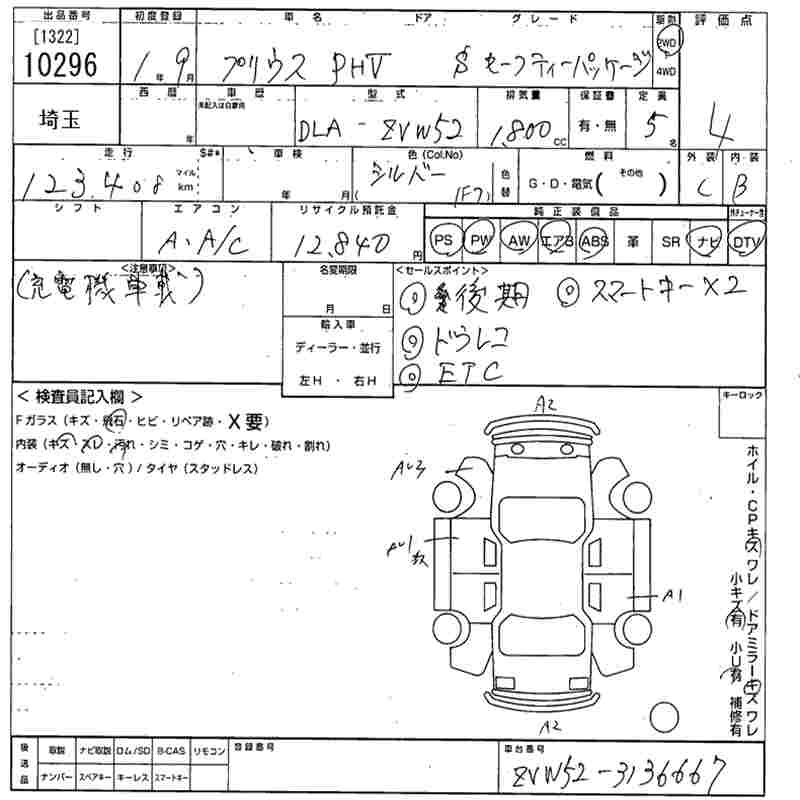 出品番号 初度登録 車名 ドア グレード 駆動 評価点
[1322]
10296
1年9月 プリウス PHV S セーフティーパッケージ 2WD
4WD
埼玉
西暦 車歴 型式 排気量 保証書 定員
未記入は自家用
年 DLA-ZVW52 1,800cc 有・無 5名 4
走行 $#* 車検 色(Col.No) 燃料 外装 内装
123,408 マイル km 年 月 シルバー (F7) 色替 G・D・電気( その他 ) C B
シフト エアコン リサイクル預託金 純正装備品
A・A/C 12,840円 PS PW AW エアB ABS 革 SR ナビ DTV
<注意事項> 名変期限 <セールスポイント>
(充電機車載) 月 日 ◎後期 ◎スマートキーX2
輸入車 ◎ドラレコ
ディーラー・並行 ◎ETC
左H・右H
<検査員記入欄> キーロック
Fガラス(キズ・飛石・ヒビ・リペア跡・X要)
内装(キズ・スレ・汚れ・シミ・コゲ・穴・キレ・破れ・割れ)
オーディオ(無し・穴)/タイヤ(スタッドレス)
A2
AU3
AU1
A1
A2
ホイル・CPキズ ワレ/ドアミラーキズ ワレ
小キズ有 小U有 補修有
後送品 取説 ナビ取説 ロム/SD B-CAS リモコン 登録番号 車台番号
ナンバー スペアキー キーレス スマートキー ZVW52-3136667